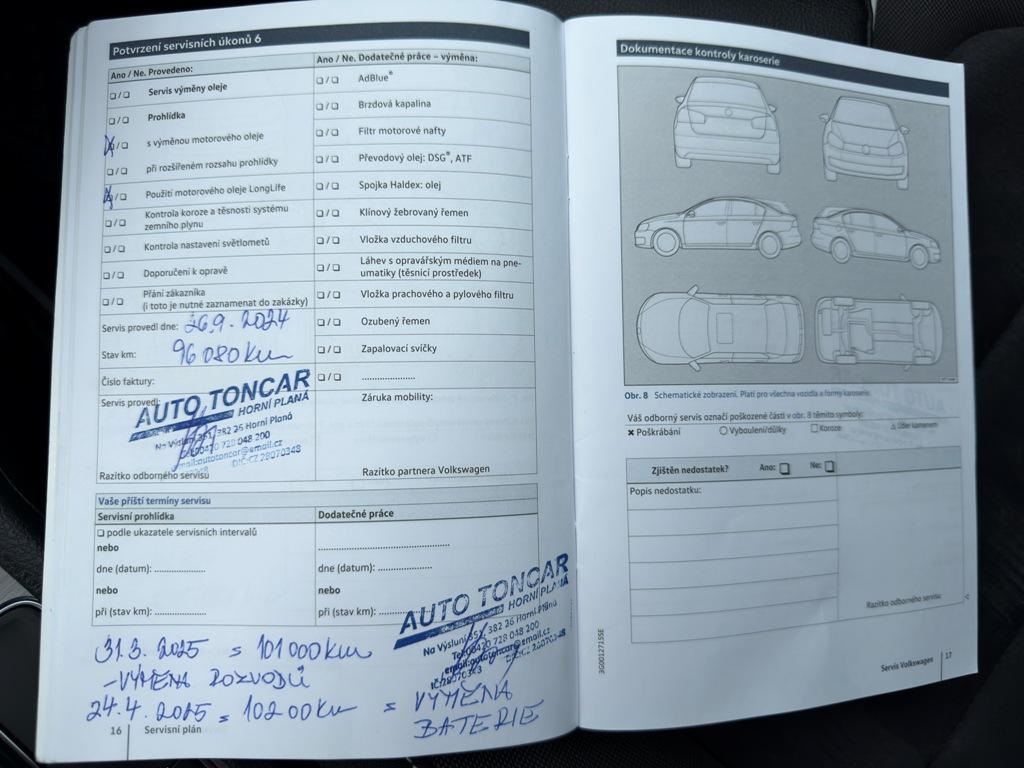 Potvrzení servisních úkonů 6
Ano / Ne. Provedeno:
❏ / ❏ Servis výměny oleje
❏ / ❏ Prohlídka
❏ / ❏ s výměnou motorového oleje
❏ / ❏ při rozšířeném rozsahu prohlídky
❏ / ❏ Použití motorového oleje LongLife
❏ / ❏ Kontrola koroze a těsnosti systému
zemního plynu
❏ / ❏ Kontrola nastavení světlometů
❏ / ❏ Doporučení k opravě
❏ / ❏ Přání zákazníka
(i toto je nutné zaznamenat do zakázky)
Servis provedl dne: 26.9.2024
Stav km: 96 080 Km
Číslo faktury:
Servis provedl:
AUTO TONCAR
HORNÍ PLANÁ
Na Výsluní 351, 382 26 Horní Planá
Tel: 00420 728 048 200
email:autotoncar@email.cz
DIČ:CZ 28070348
Razítko odborného servisu
Ano / Ne. Dodatečné práce – výměna:
❏ / ❏ AdBlue®
❏ / ❏ Brzdová kapalina
❏ / ❏ Filtr motorové nafty
❏ / ❏ Převodový olej: DSG®, ATF
❏ / ❏ Spojka Haldex: olej
❏ / ❏ Klínový žebrovaný řemen
❏ / ❏ Vložka vzduchového filtru
❏ / ❏ Láhev s opravářským médiem na pne-
umatiky (těsnicí prostředek)
❏ / ❏ Vložka prachového a pylového filtru
❏ / ❏ Ozubený řemen
❏ / ❏ Zapalovací svíčky
❏ / ❏ .....................
Záruka mobility:
Razítko partnera Volkswagen
Vaše příští termíny servisu
Servisní prohlídka
❏ podle ukazatele servisních intervalů
nebo
dne (datum): ....................
nebo
při (stav km): ....................
Dodatečné práce
..................................................
dne (datum): .....................
nebo
při (stav km): ....................
AUTO TONCAR
HORNÍ PLANÁ
Na Výsluní 351, 382 26 Horní Planá
Tel: 00420 728 048 200
email:autotoncar@email.cz
IČ:28070348 DIČ:CZ 28070348
31.3.2025 = 101 000 Km
- VÝMĚNA ROZVODŮ
24.4.2025 = 102 00 Km = VÝMĚNA
BATERIE
16 Servisní plán
Dokumentace kontroly karoserie
Obr. 8 Schematické zobrazení. Platí pro všechna vozidla a formy karoserie.
Váš odborný servis označí poškozené části v obr. 8 těmito symboly:
✕ Poškrábání ○ Vyboulení/důlky □ Koroze △ Úder kamenem
Zjištěn nedostatek? Ano: ❏ Ne: ❏
Popis nedostatku:
Razítko odborného servisu
3G0012715SE
Servis Volkswagen 17